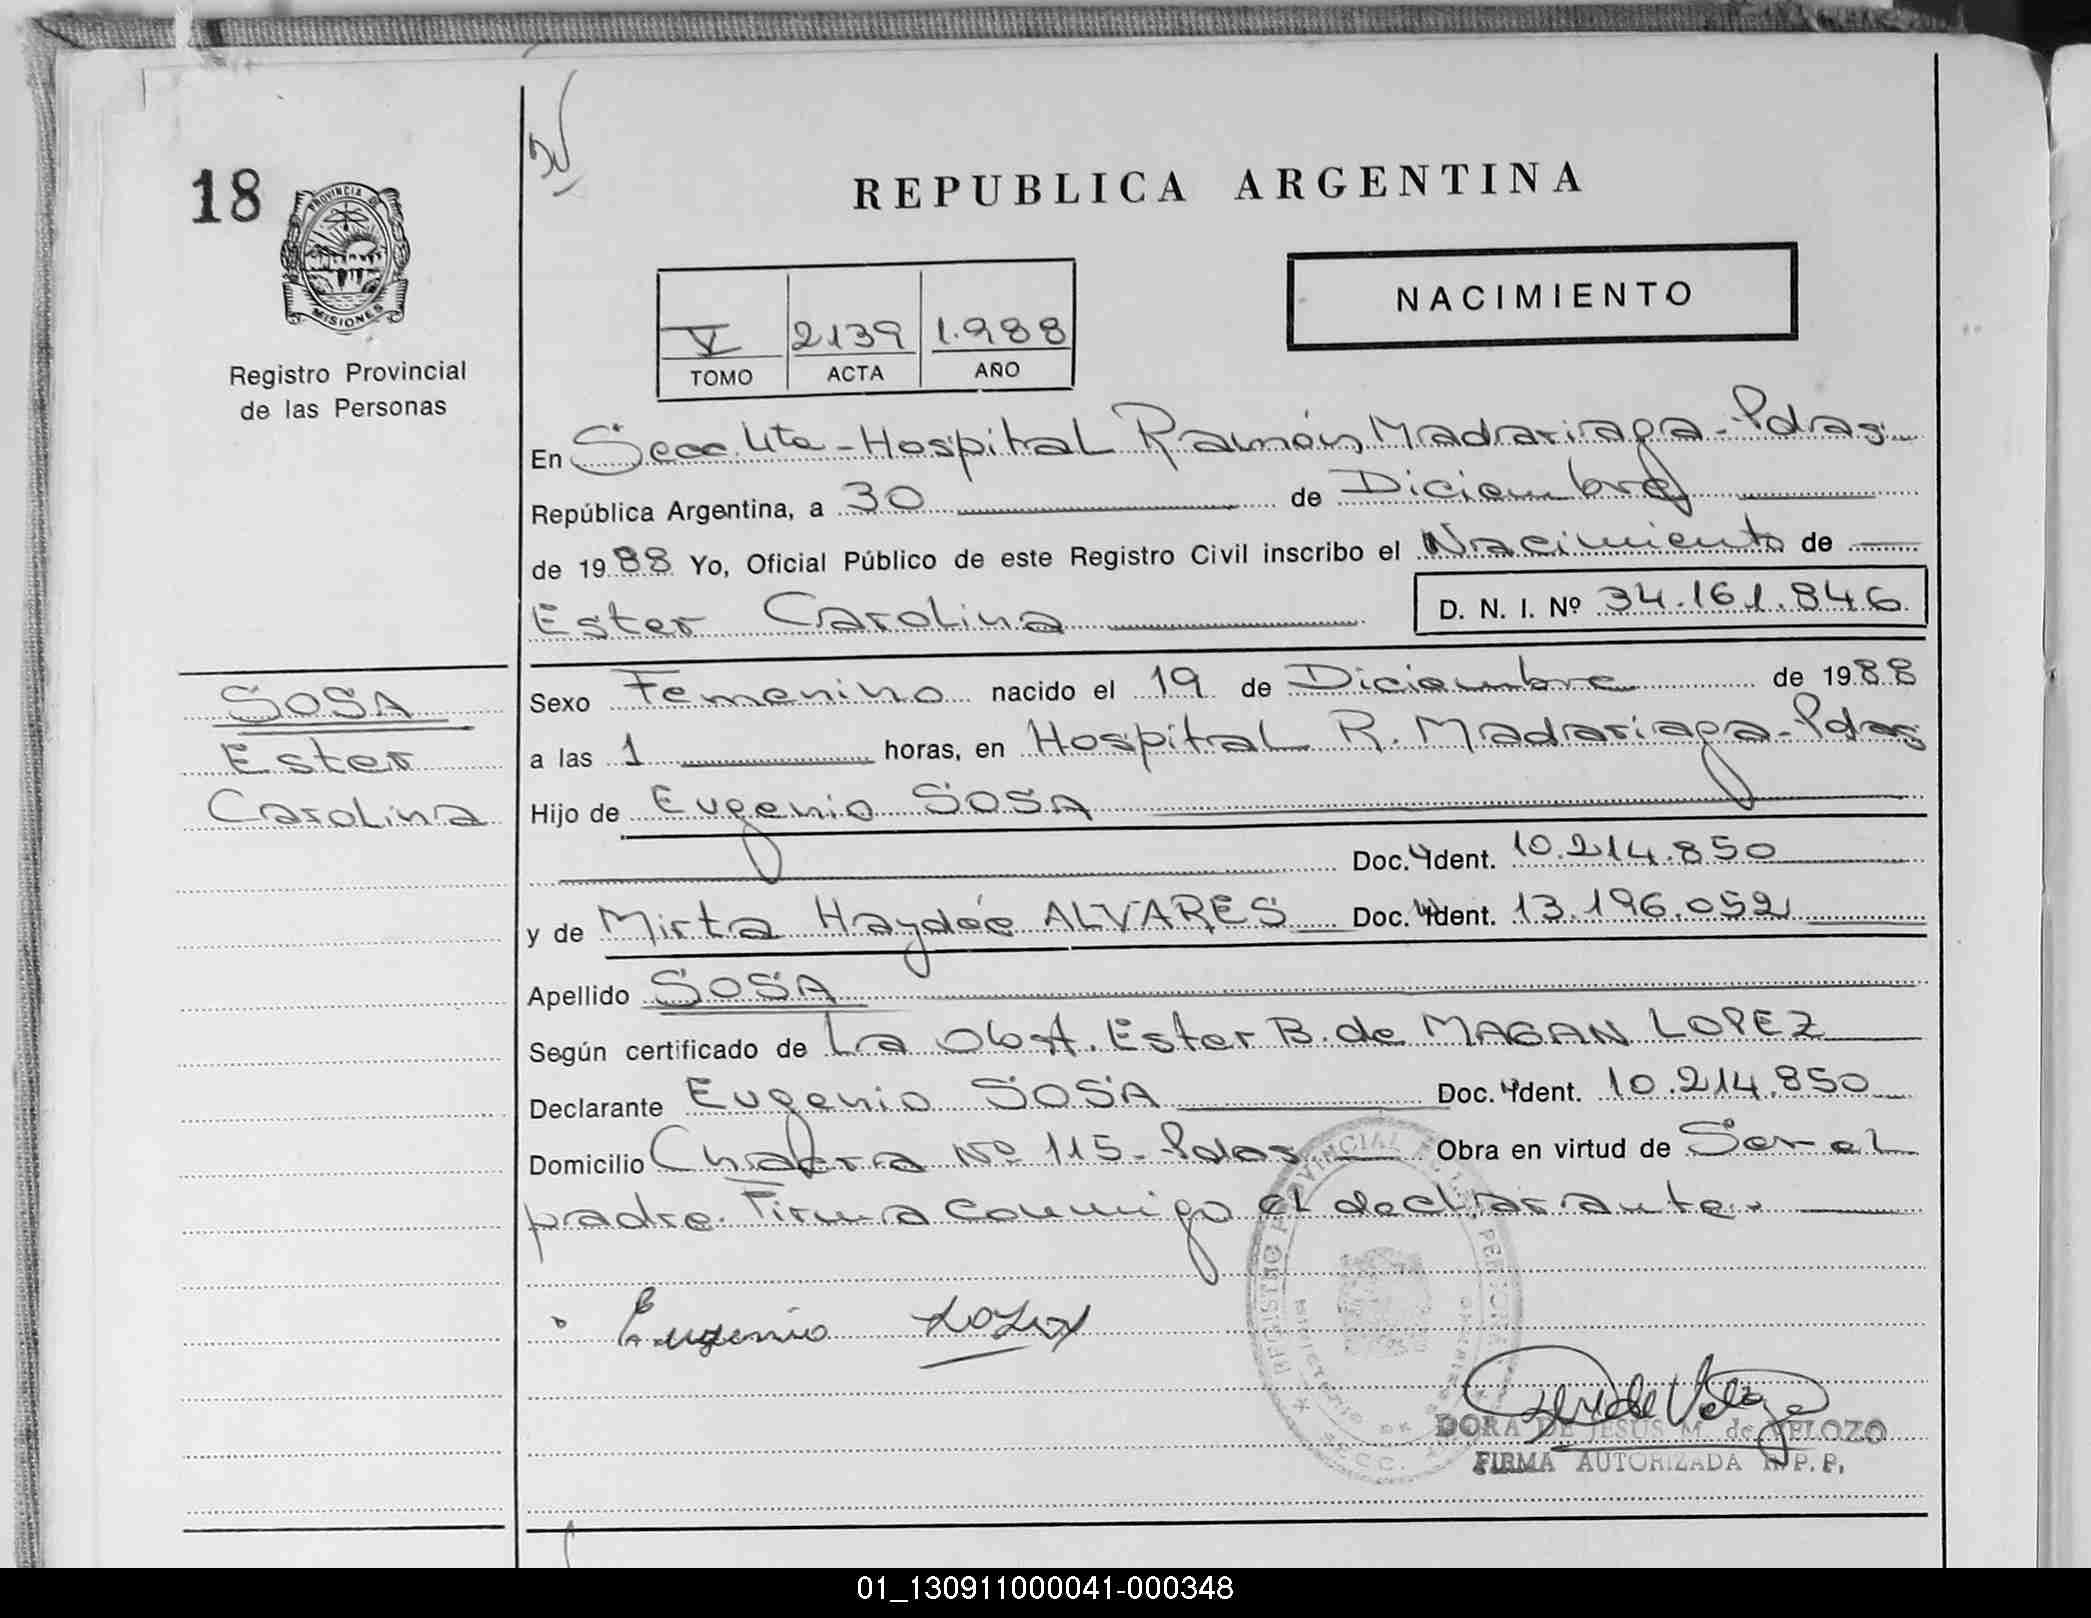 18
PROVINCIA DE
MISIONES
Registro Provincial
de las Personas
REPUBLICA ARGENTINA
NACIMIENTO
V 2139 1.988
TOMO ACTA AÑO
En Secc. 4ta - Hospital Ramón Madariaga - Pdas
República Argentina, a 30 de Diciembre
de 1988 Yo, Oficial Público de este Registro Civil inscribo el Nacimiento de
Ester Carolina D. N. I. Nº 34.161.846
SOSA
Ester
Carolina
Sexo Femenino nacido el 19 de Diciembre de 1988
a las 1 horas, en Hospital R. Madariaga - Pdas
Hijo de Eugenio SOSA
Doc. Ident. 10.214.850
y de Mirta Haydée ALVARES Doc. Ident. 13.196.052
Apellido SOSA
Según certificado de La Obst. Ester B. de MAGAN LOPEZ
Declarante Eugenio SOSA Doc. Ident. 10.214.850
Domicilio Chacra Nº 115 - Pdas Obra en virtud de Ser el
padre. Firma conmigo el declarante.
Eugenio Sosa
DORA DE JESUS M. de VELOZO
FIRMA AUTORIZADA R.P.P.
01_130911000041-000348